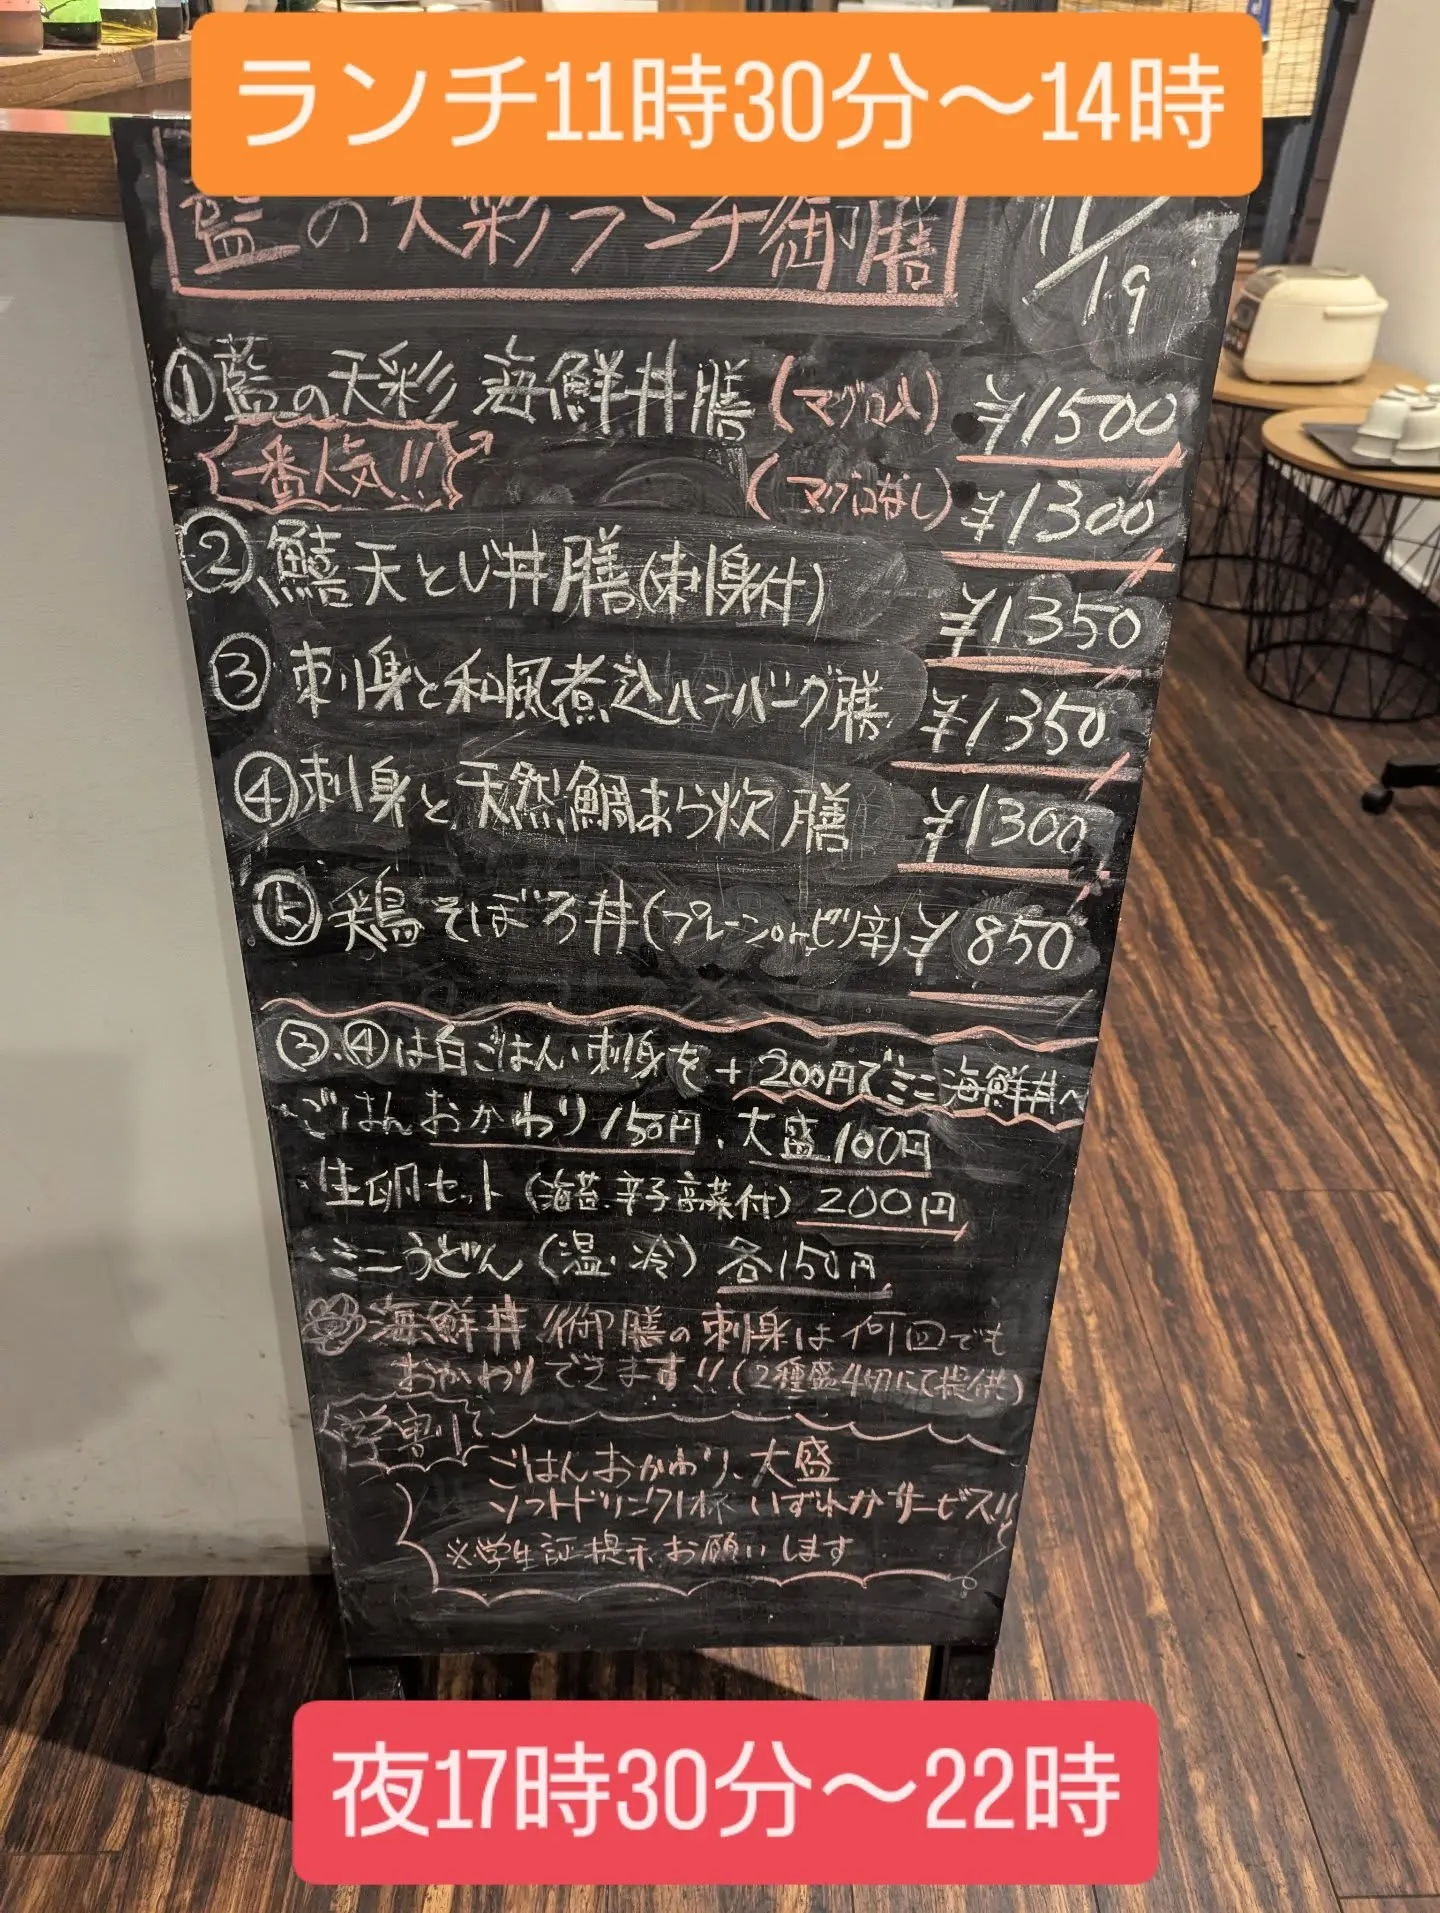 ランチ11時30分〜14時
藍の天彩ランチ御膳
11/19
①藍の天彩 海鮮丼膳(マグロ入) ¥1500
一番人気!! (マグロなし) ¥1300
②鱚天とじ丼膳(刺身付) ¥1350
③刺身と和風煮込ハンバーグ膳 ¥1350
④刺身と天然鯛あら炊膳 ¥1300
⑤鶏そぼろ丼(プレーンorピリ辛) ¥850
③、④は白ごはん、刺身を+200円でミニ海鮮丼へ
ごはんおかわり150円、大盛100円
生卵セット(海苔、辛子高菜付) 200円
ミニうどん(温・冷) 各150円
海鮮丼/御膳の刺身は何回でも
おかわりできます!!(2種盛4切にて提供)
学割
ごはんおかわり、大盛
ソフトドリンク1杯 いずれかサービス!!
※学生証提示お願いします
夜17時30分〜22時